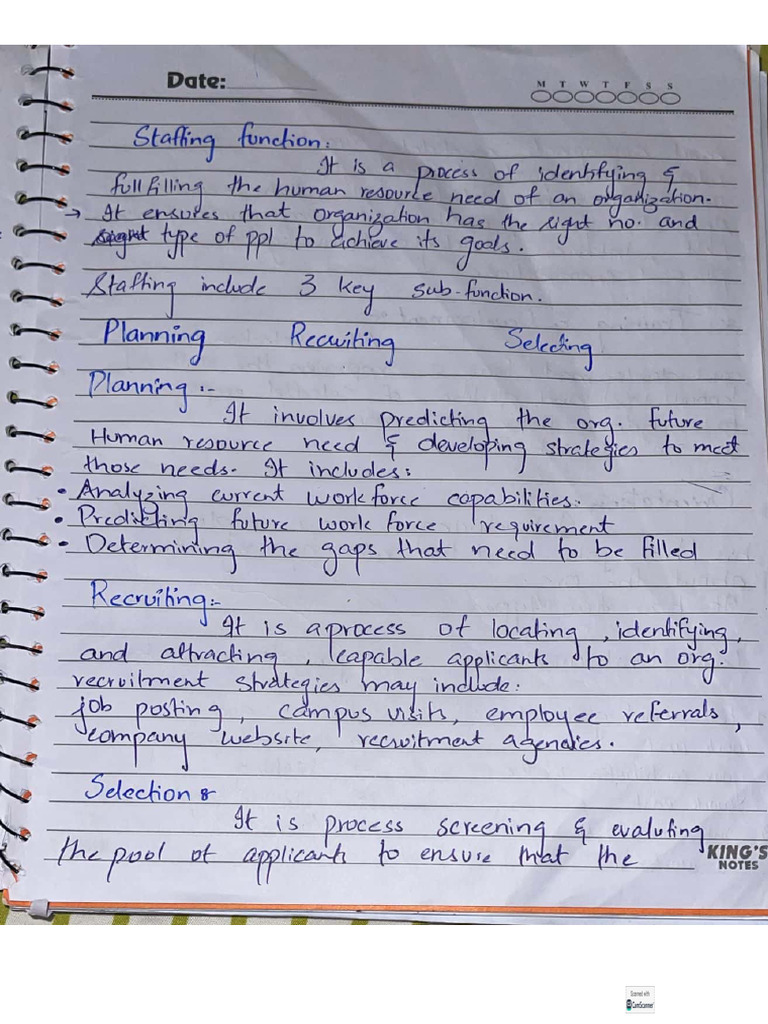 Date:
M T W T F S S
Staffing function:
It is a process of identifying &
full filling the human resource need of an organization.
→ It ensures that organization has the right no. and
type of ppl to achieve its goals.
Staffing include 3 key sub-function.
Planning Recruiting Selecting
Planning :-
It involves predicting the org. future
Human resource need & developing strategies to meet
those needs. It includes:
• Analyzing current work force capabilities.
• Predicting future work force requirement
• Determining the gaps that need to be filled
Recruiting:-
It is a process of locating, identifying,
and attracting, capable applicants to an org.
recruitment strategies may include:
job posting, campus visits, employee referrals,
company website, recruitment agencies.
Selection :
It is process screening & evaluting
the pool of applicants to ensure that the
KING'S
NOTES
Scanned with
CamScanner